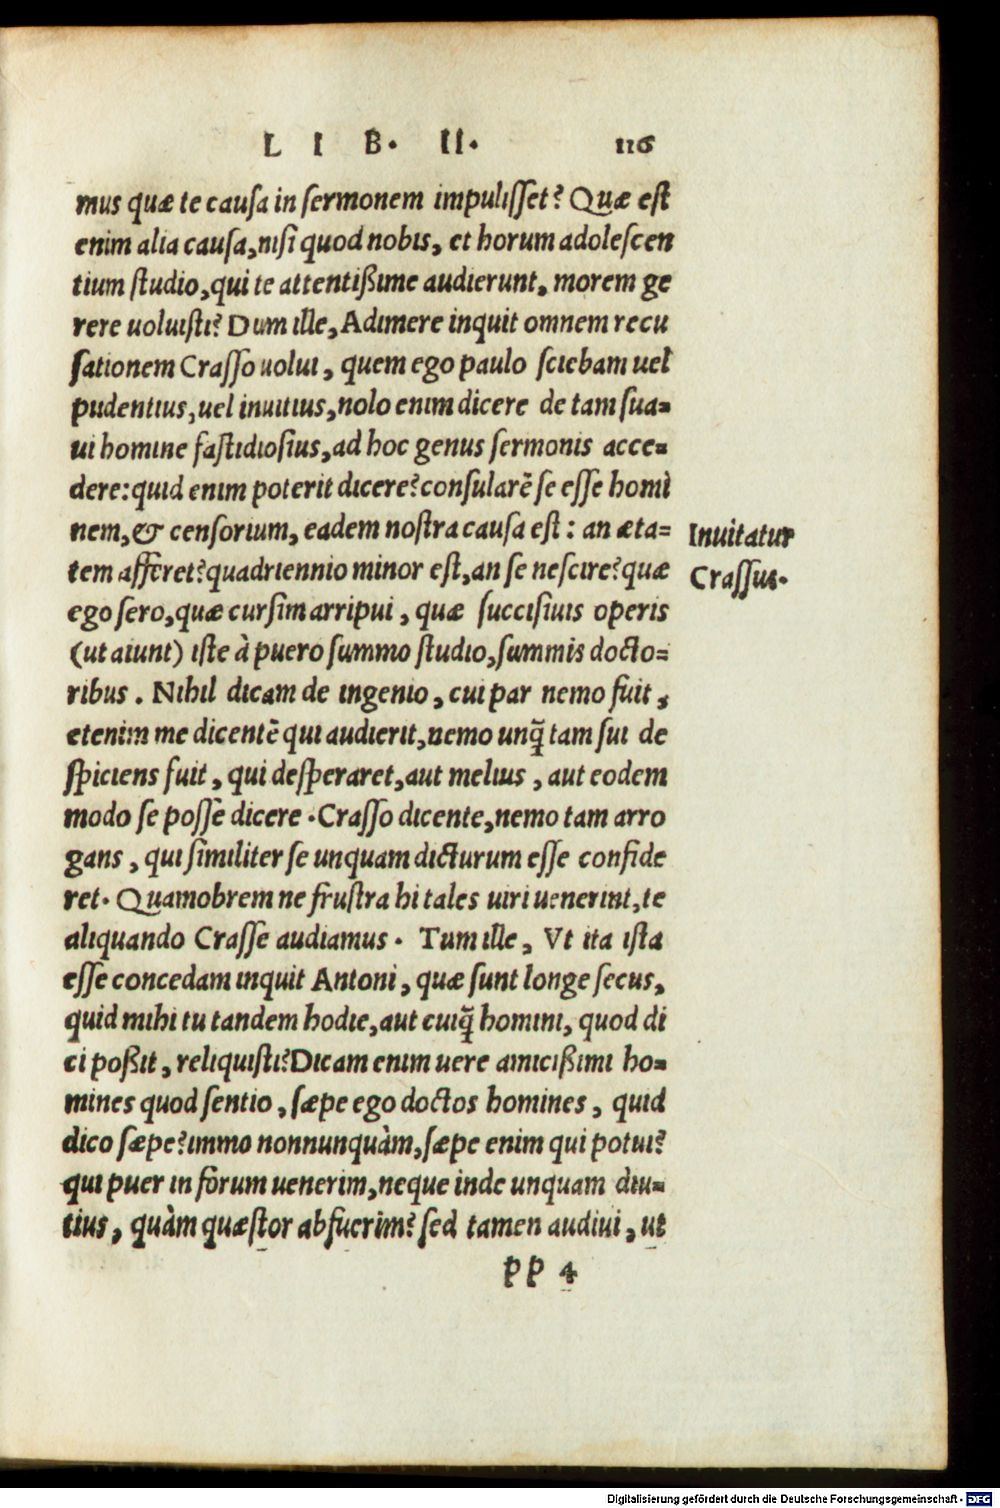 LIB. II. 116
mus quæ te causa in sermonem impulisset? Quæ est
enim alia causa, nisi quod nobis, et horum adolescen
tium studio, qui te attentißime audierunt, morem ge
rere uoluisti? Dum ille, Adimere inquit omnem recu
sationem Crasso uolui, quem ego paulo sciebam uel
pudentius, uel inuitius, nolo enim dicere de tam sua=
ui homine fastidiosius, ad hoc genus sermonis acce=
dere: quid enim poterit dicere? consularē se esse homi
nem, & censorium, eadem nostra causa est: an æta=
tem afferet? quadriennio minor est, an se nescire? quæ
ego sero, quæ cursim arripui, quæ succisiuis operis
(ut aiunt) iste à puero summo studio, summis docto=
ribus. Nihil dicam de ingenio, cui par nemo fuit,
etenim me dicentē qui audierit, nemo unq̃ tam sui de
spiciens fuit, qui desperaret, aut melius, aut eodem
modo se posse dicere. Crasso dicente, nemo tam arro
gans, qui similiter se unquam dicturum esse confide
ret. Quamobrem ne frustra hi tales uiri uenerint, te
aliquando Crasse audiamus. Tum ille, Vt ita ista
esse concedam inquit Antoni, quæ sunt longe secus,
quid mihi tu tandem hodie, aut cuiq̃ homini, quod di
ci poßit, reliquisti? Dicam enim uere amicißimi ho=
mines quod sentio, sæpe ego doctos homines, quid
dico sæpe? immo nonnunquàm, sæpe enim qui potui?
qui puer in forum uenerim, neque inde unquam diu=
tius, quàm quæstor abfuerim? sed tamen audiui, ut
PP 4
Inuitatur
Crassus.
Digitalisierung gefördert durch die Deutsche Forschungsgemeinschaft - DFG